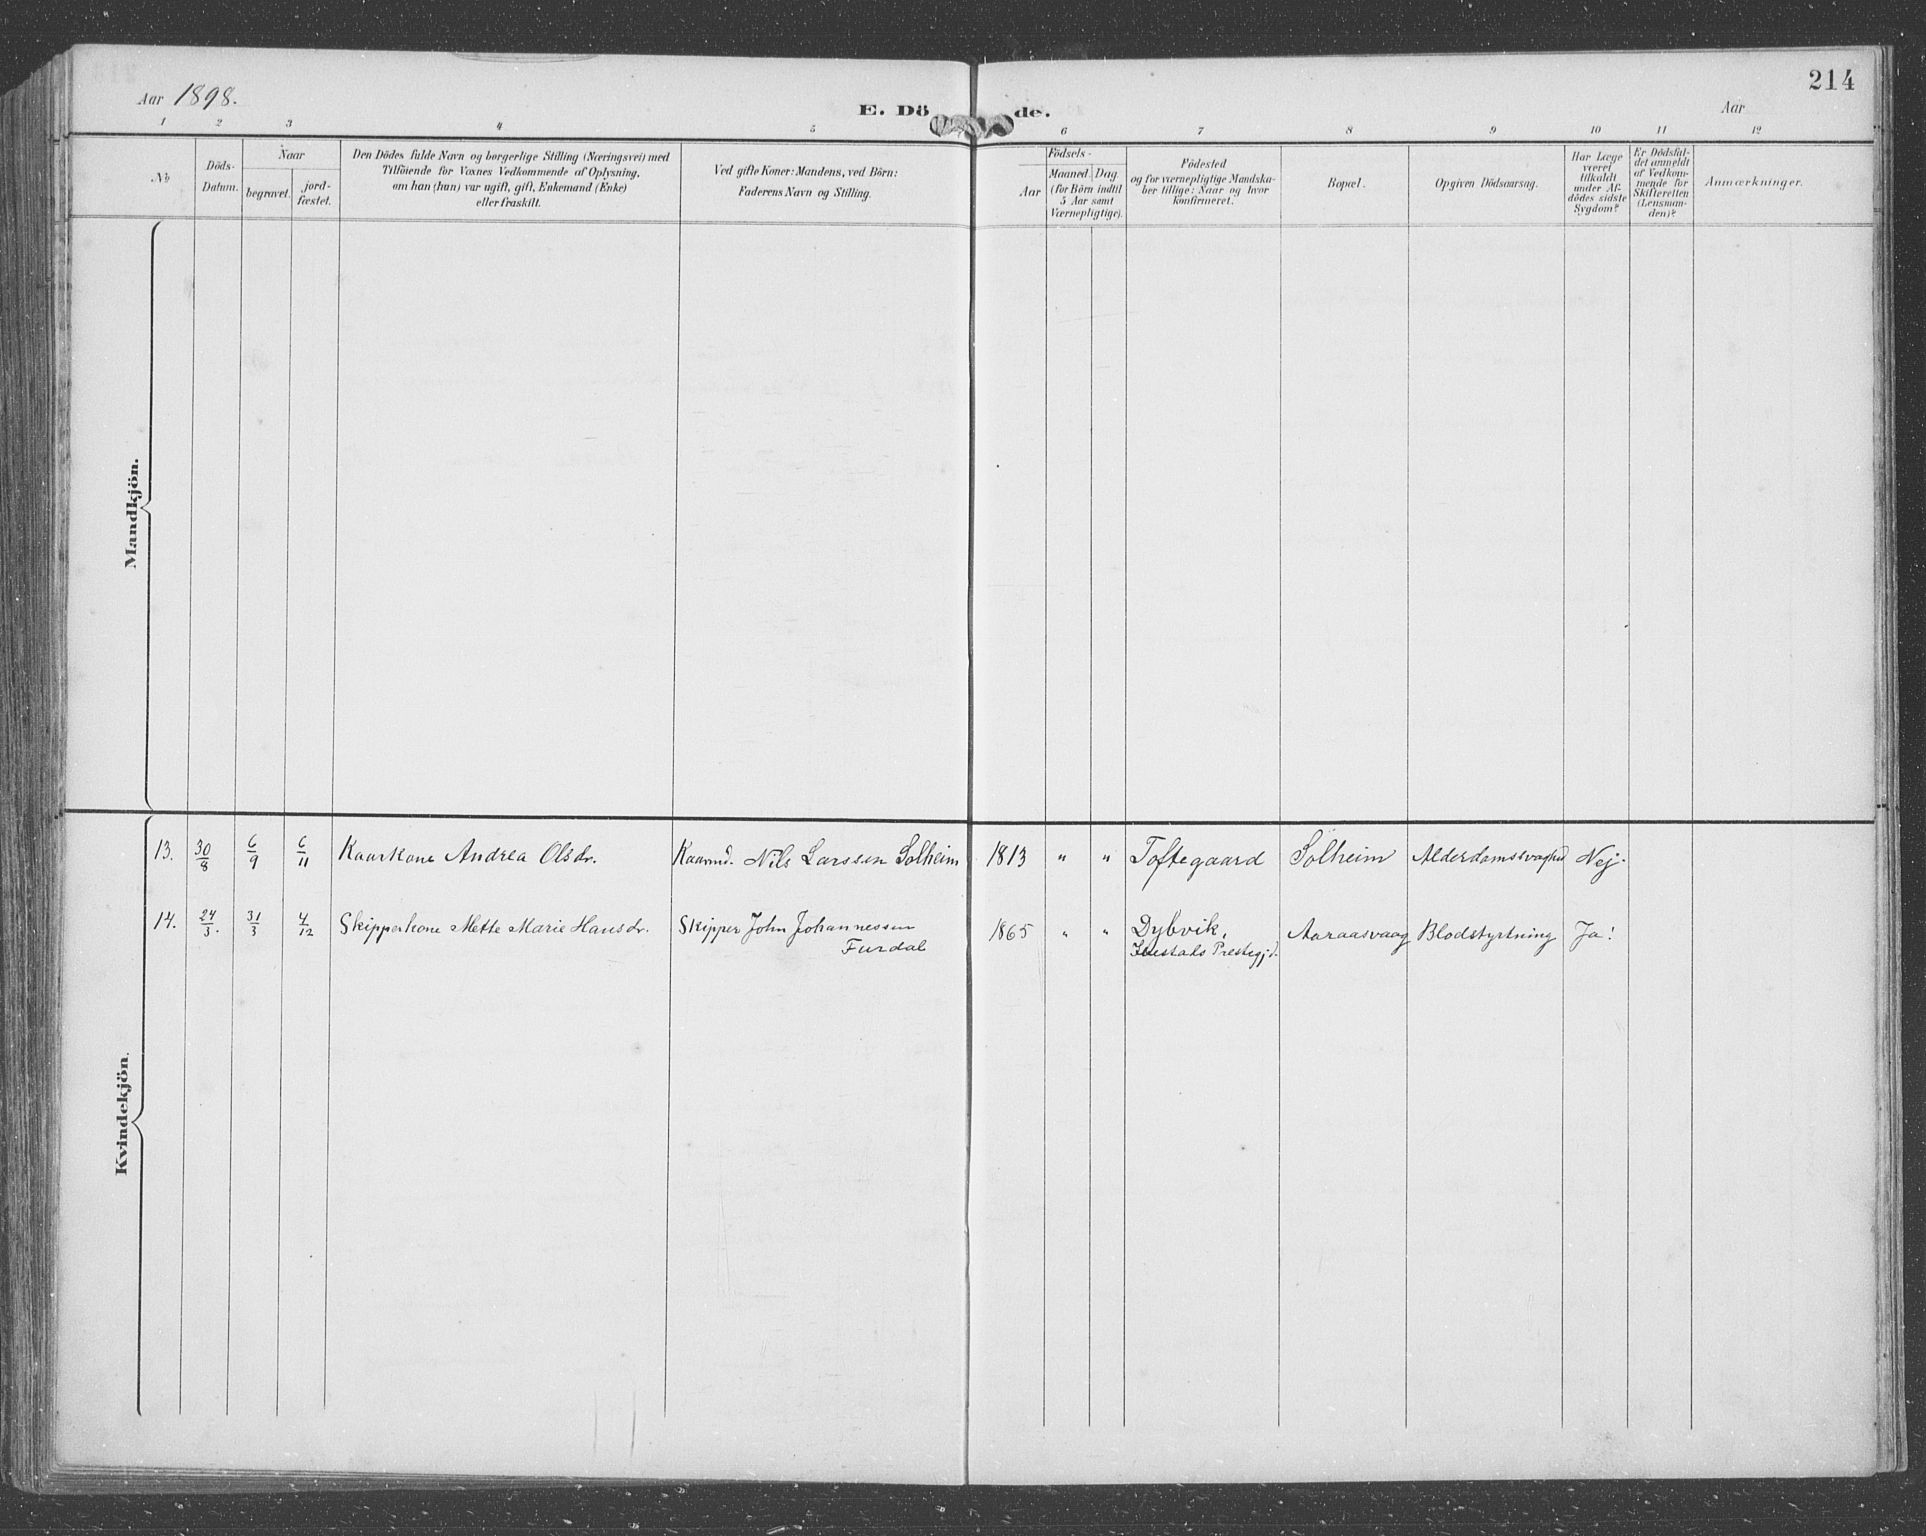 214
Aar 1898.
E. Dö de.
Aar
1 2 3 4 5 6 7 8 9 10 11 12
No
Döds-
Datum.
Naar
begravet.
jord-
fæstet.
Den Dödes fulde Navn og borgerlige Stilling (Næringsvei) med
Tilföiende for Voxnes Vedkommende af Oplysning,
om han (hun) var ugift, gift, Enkemand (Enke)
eller fraskilt.
Ved gifte Koner: Mandens, ved Börn:
Faderens Navn og Stilling.
Födsels-
Aar
Maaned. Dag.
(for Börn indtil
5 Aar samt
Værnepligtige).
Födested
og for værnepligtige Mandska-
ber tillige: Naar og hvor
konfirmeret.
Bopæl.
Opgiven Dödsaarsag.
Har Læge
været
tilkaldt
under Af-
dödes sidste
Sygdom?
Er Dödsfal-
det anmeldt
af Vedkom-
mende for
Skifteretten
(Lensman-
den)?
Anmærkninger.
Mandkjön.
Kvindekjön.
13. 30/8 6/9 6/11 Kaarkone Andrea Olsdr. Kaarmd. Nils Larssen Solheim 1813 " " Toftegaard Solheim Alderdomssvaghed Nej.
14. 24/3. 31/3 4/12 Skipperkone Mette Marie Hansdr. Skipper John Johannessen 1865 " " Dybvik, Aaraasvaag Blodstyrtning Ja!
Furdal Prestegjd.